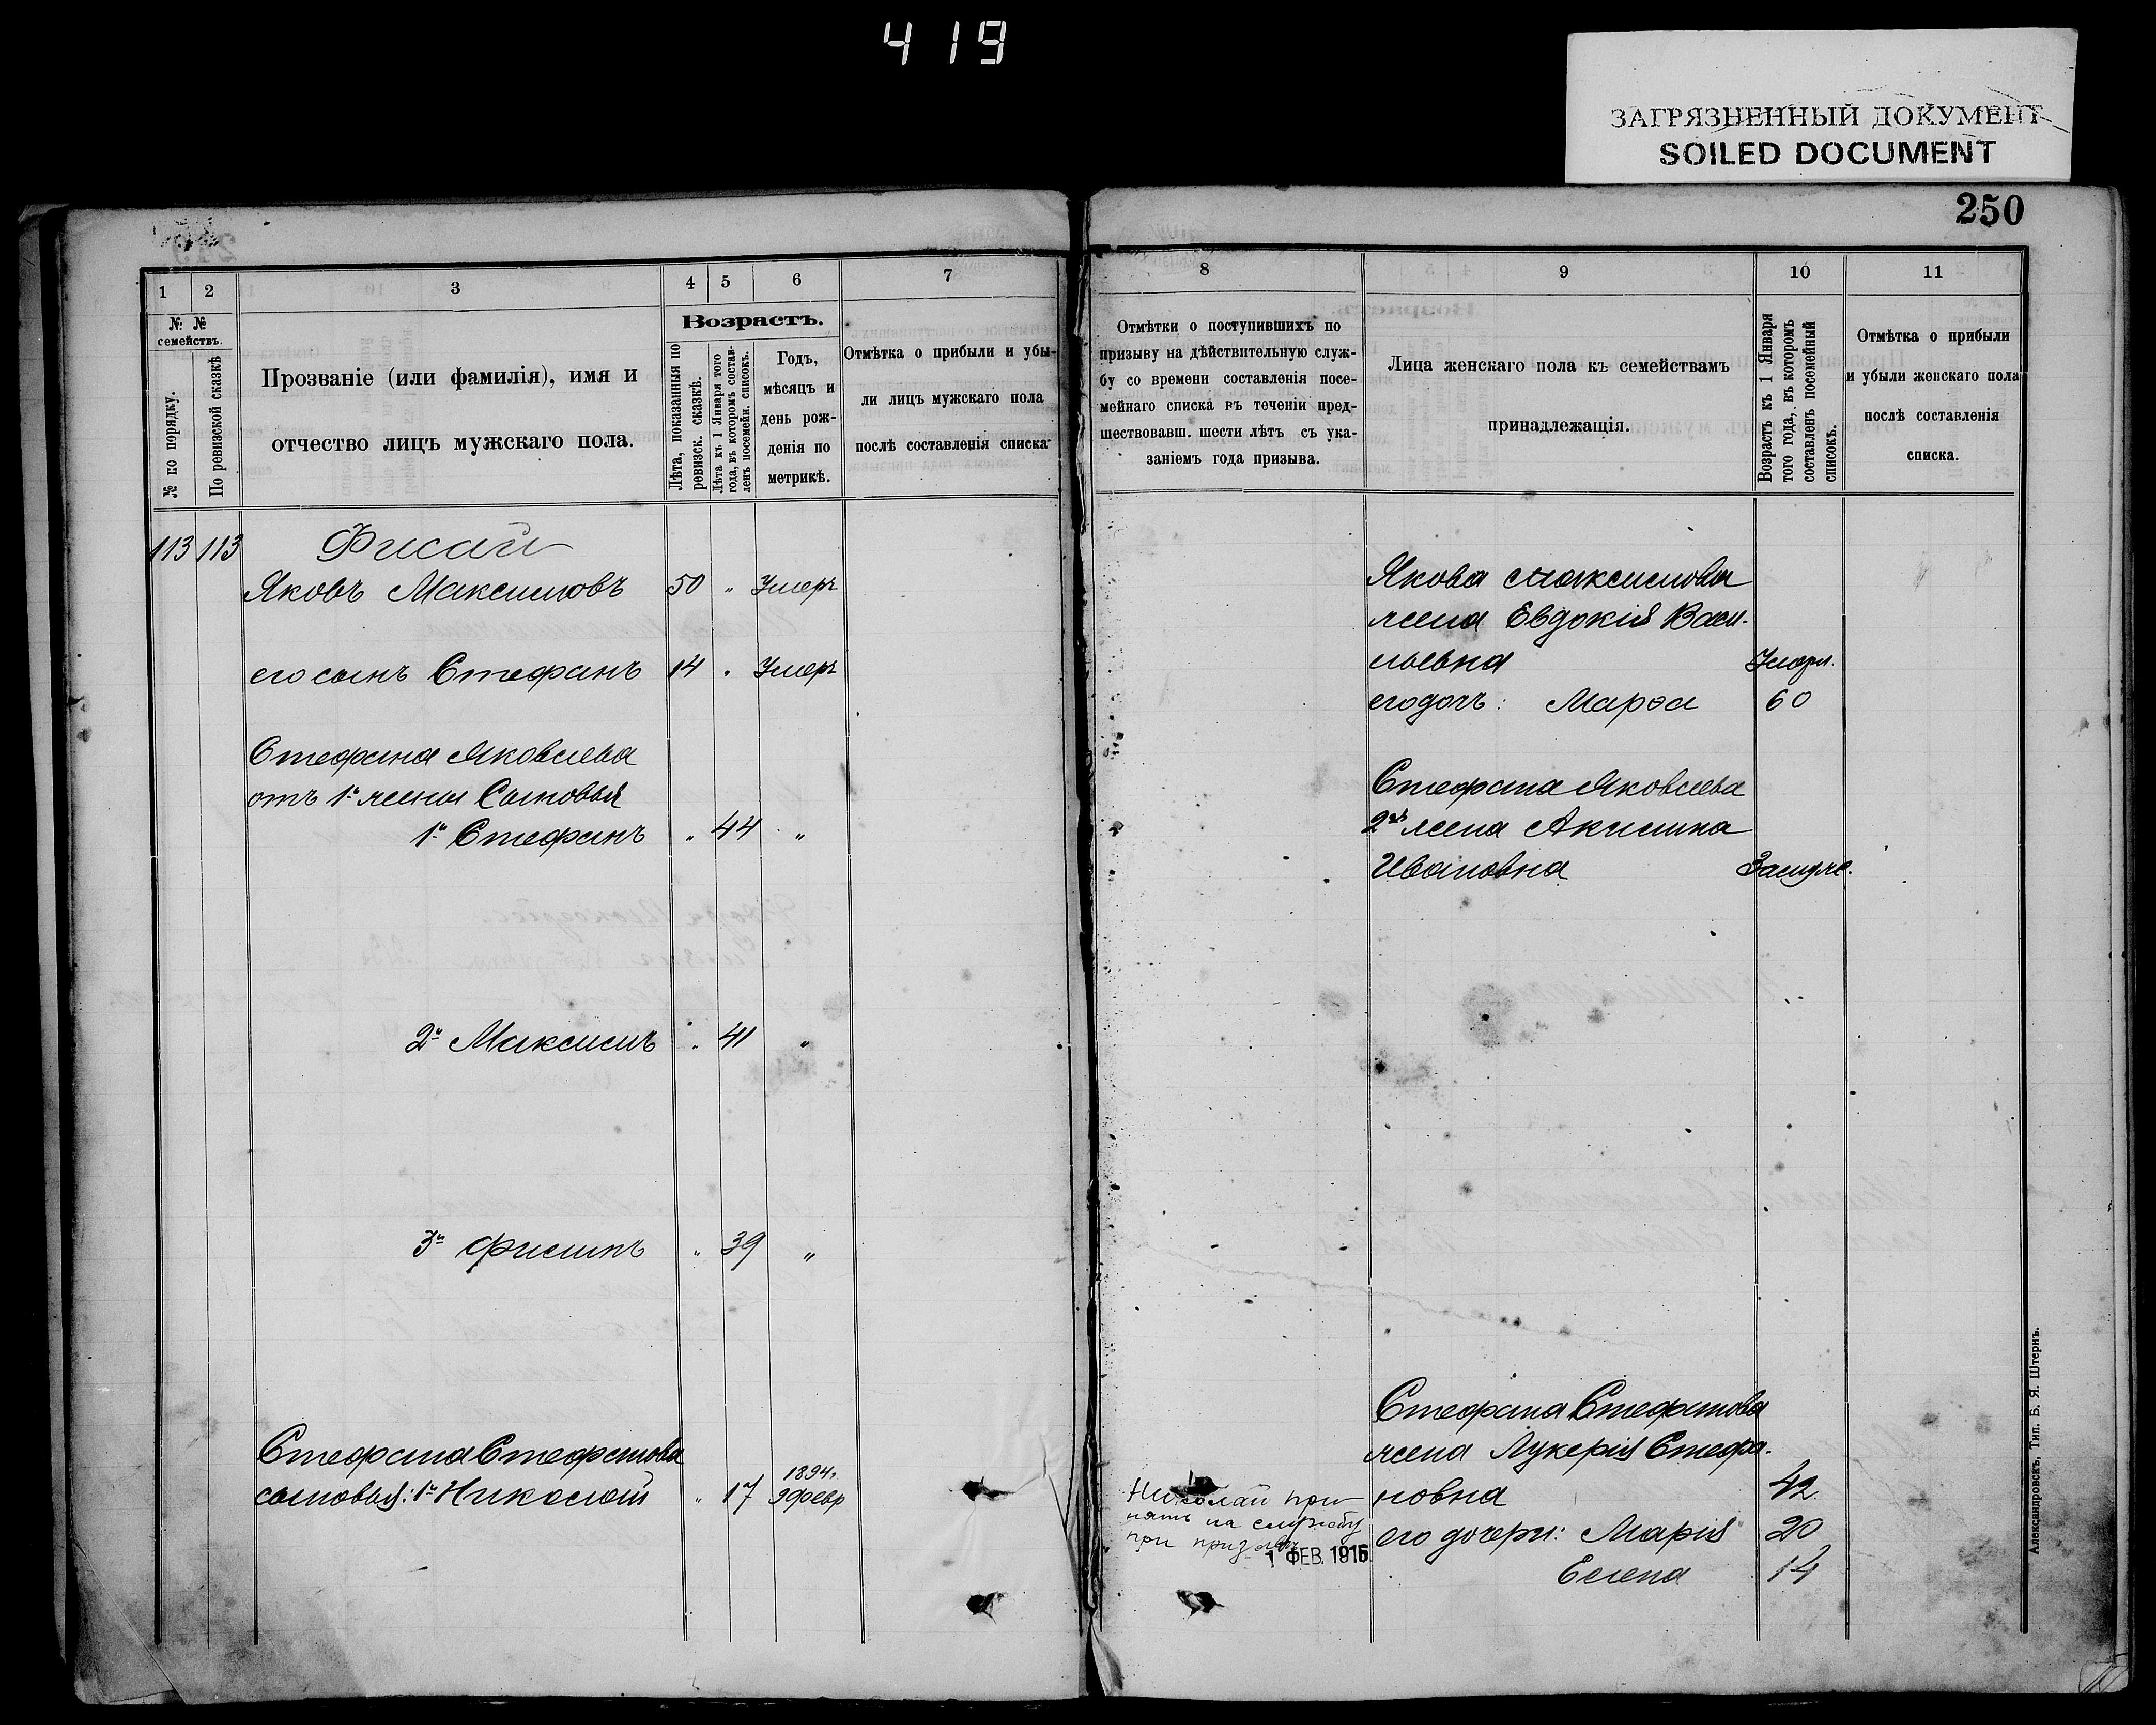 419
ЗАГРЯЗНЕННЫЙ ДОКУМЕНТ
SOILED DOCUMENT
250
1 2 3 4 5 6 7
№ № семействъ.
№ по порядку.
По ревизской сказкѣ
Прозваніе (или фамилія), имя и
отчество лицъ мужскаго пола.
Возрастъ.
Лѣта, показанныя по
ревизск. сказкѣ.
Лѣта къ 1 Января того
года, въ которомъ состав-
ленъ посемейн. списокъ.
Годъ,
мѣсяцъ и
день рож-
денія по
метрикѣ.
Отмѣтка о прибыли и убы-
ли лицъ мужскаго пола
послѣ составленія списка
113 113
Яковъ Максимовъ 50 " Умеръ
его сынъ Стефанъ 14 " Умеръ
Стефана Яковлева
отъ 1й жены Сыновья
1й Стефанъ " 44 "
2й Максимъ " 41 "
3й Филипъ " 39 "
Стефана Стефанова
сыновья: 1й Николай " 17 1894.
9 февр
8 9 10 11
Отмѣтки о поступившихъ по
призыву на дѣйствительную служ-
бу со времени составленія посе-
мейнаго списка въ теченіи пред-
шествовавш. шести лѣтъ съ ука-
заніемъ года призыва.
Лица женскаго пола къ семействамъ
принадлежащія.
Возрастъ къ 1 Января
того года, въ которомъ
составленъ посемейный
списокъ.
Отмѣтка о прибыли
и убыли женскаго пола
послѣ составленія
списка.
Якова Максимова
жена Евдокія Васи-
льевна Умерл.
его дочь: Марѳа 60
Стефана Яковлева
2я жена Акилина
Ивановна Замуж.
Стефана Стефанова
жена Лукерія Стефа-
новна 42
его дочери: Марія 20
Елена 14
Николай при
нятъ на службу
при призывѣ
1 ФЕВ. 1915
Александровскъ, Тип. Б. Я. Штернъ.